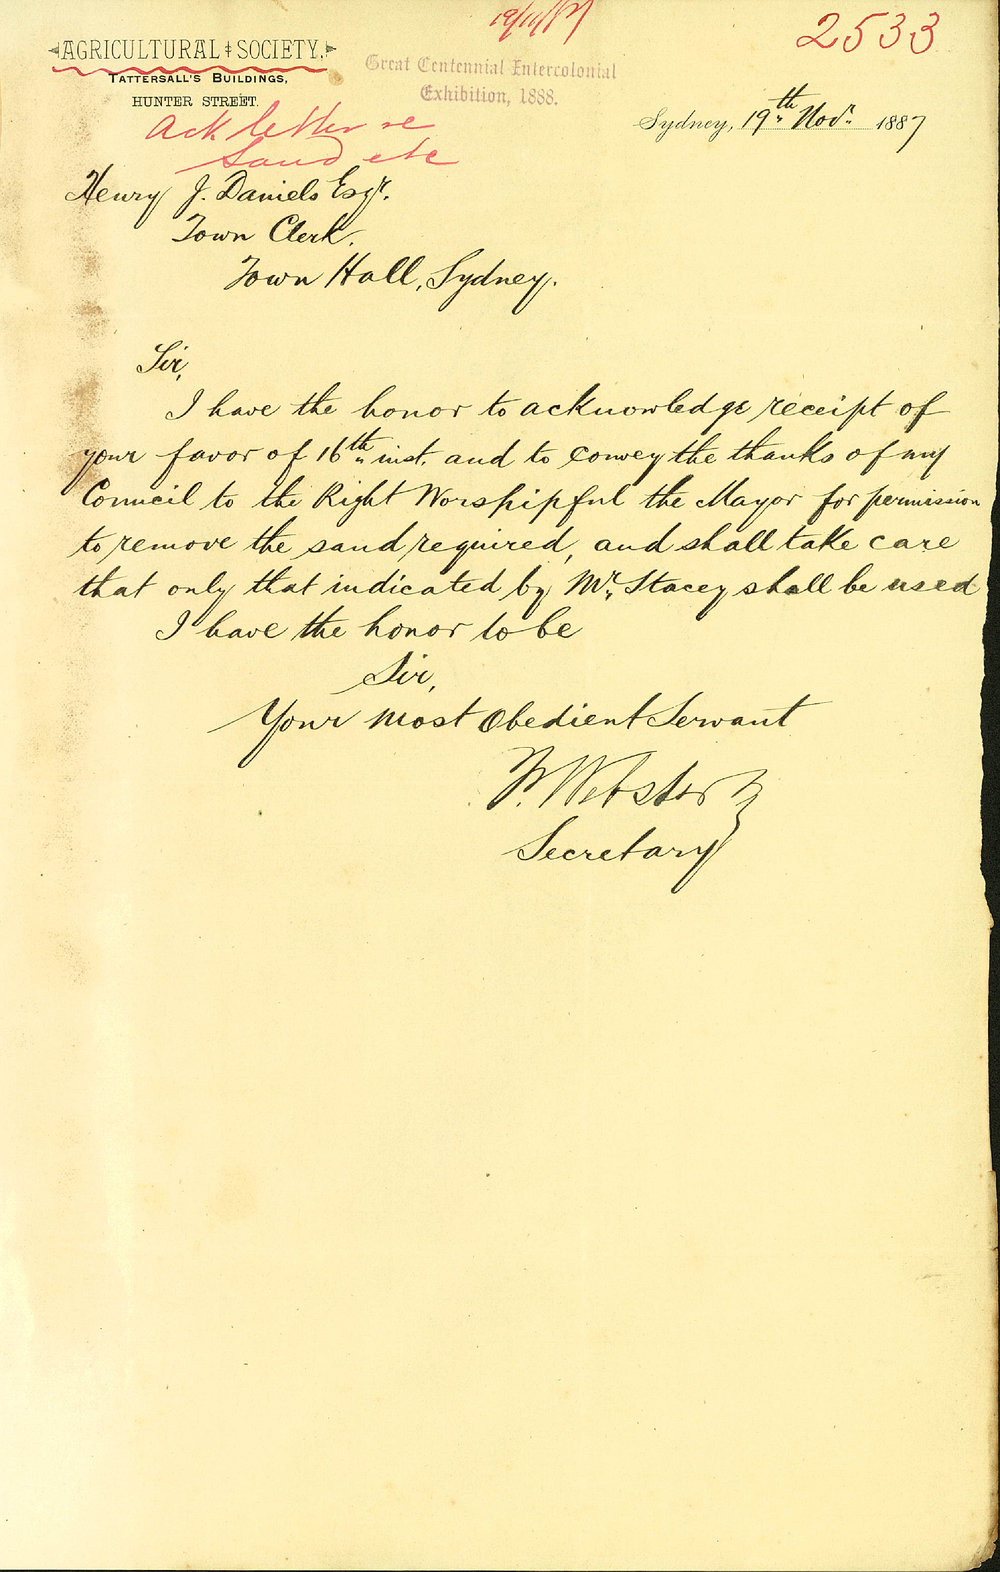 19/11/87
2533
AGRICULTURAL SOCIETY.
TATTERSALL'S BUILDINGS,
HUNTER STREET.
Great Centennial Intercolonial
Exhibition, 1888.
Sydney, 19th Novr. 1887
Ack letter re
Sand etc
Henry J. Daniels Esqr.
Town Clerk.
Town Hall, Sydney.
Sir,
I have the honor to acknowledge receipt of
your favor of 16th inst. and to convey the thanks of my
Council to the Right Worshipful the Mayor for permission
to remove the sand required, and shall take care
that only that indicated by Mr. Stacey shall be used
I have the honor to be
Sir,
Your most Obedient Servant
F. Webster
Secretary